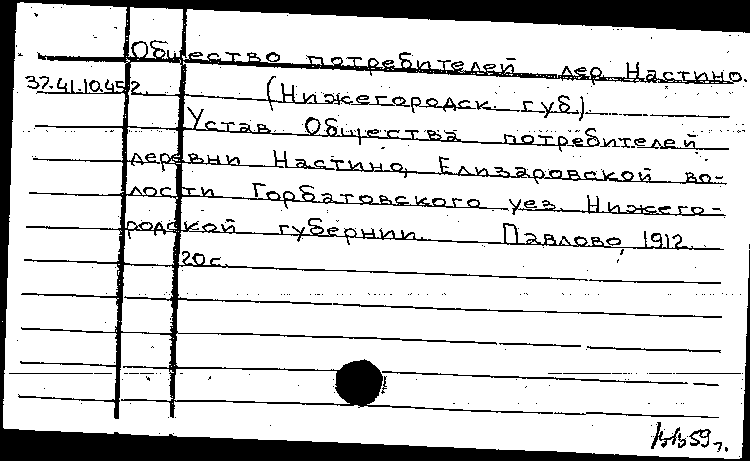 Общество потребителей дер Настино.
37.41.10.452. (Нижегородск. губ.)
Устав Общества потребителей
деревни Настино, Елизаровской во-
лости Горбатовского уез. Нижего-
родской губернии. Павлово, 1912.
20 с.